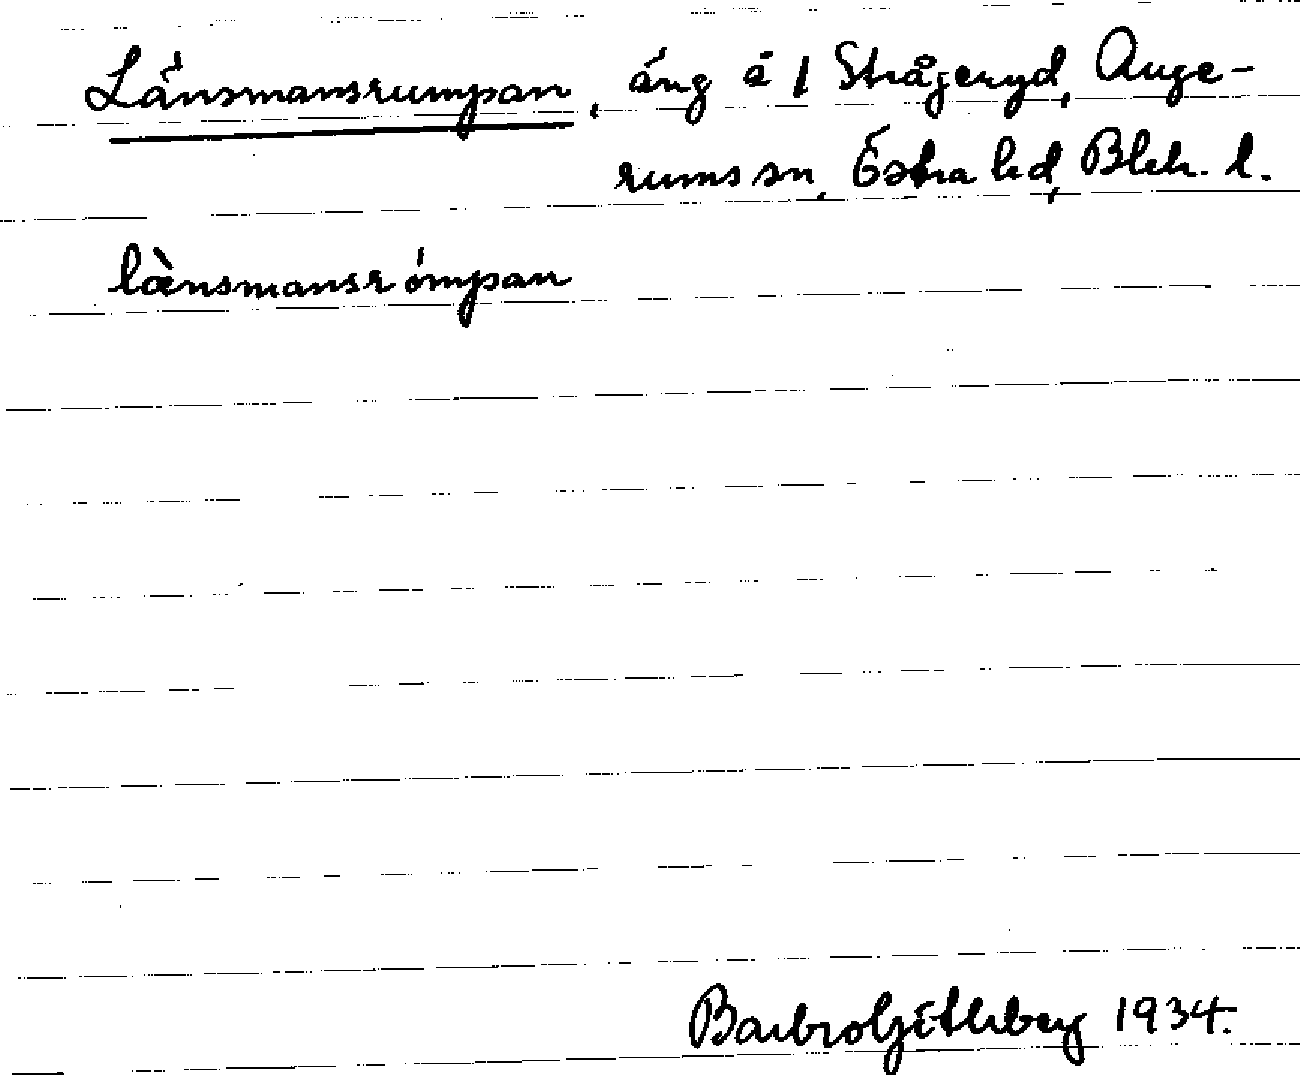 Länsmansrumpan, äng å 1 Stråjeryd, Auge-
rums sn, Östra hd, Blek. l.
lànsmansrómpan
Barbro Götleberg 1934.